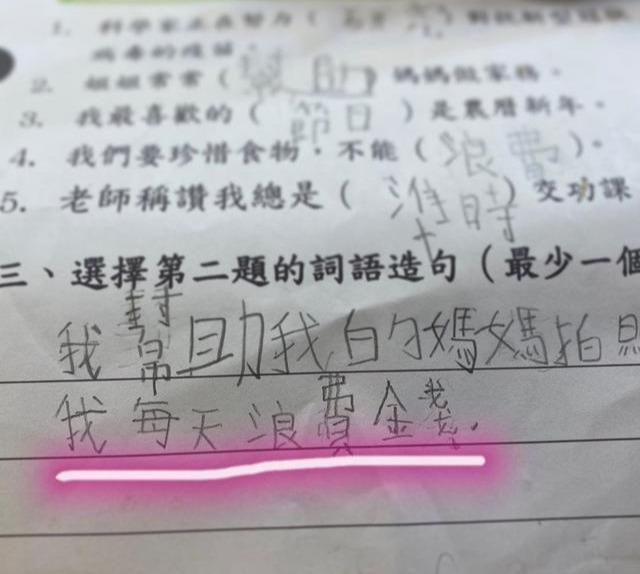 1. 科學家正在努力（
病毒的疫苗。
2. 姐姐常常（幫助）媽媽做家務。
3. 我最喜歡的（節日）是農曆新年。
4. 我們要珍惜食物，不能（浪費）。
5. 老師稱讚我總是（準時）交功課
三、選擇第二題的詞語造句（最少一個
我幫助我的媽媽拍照
我每天浪費金錢.